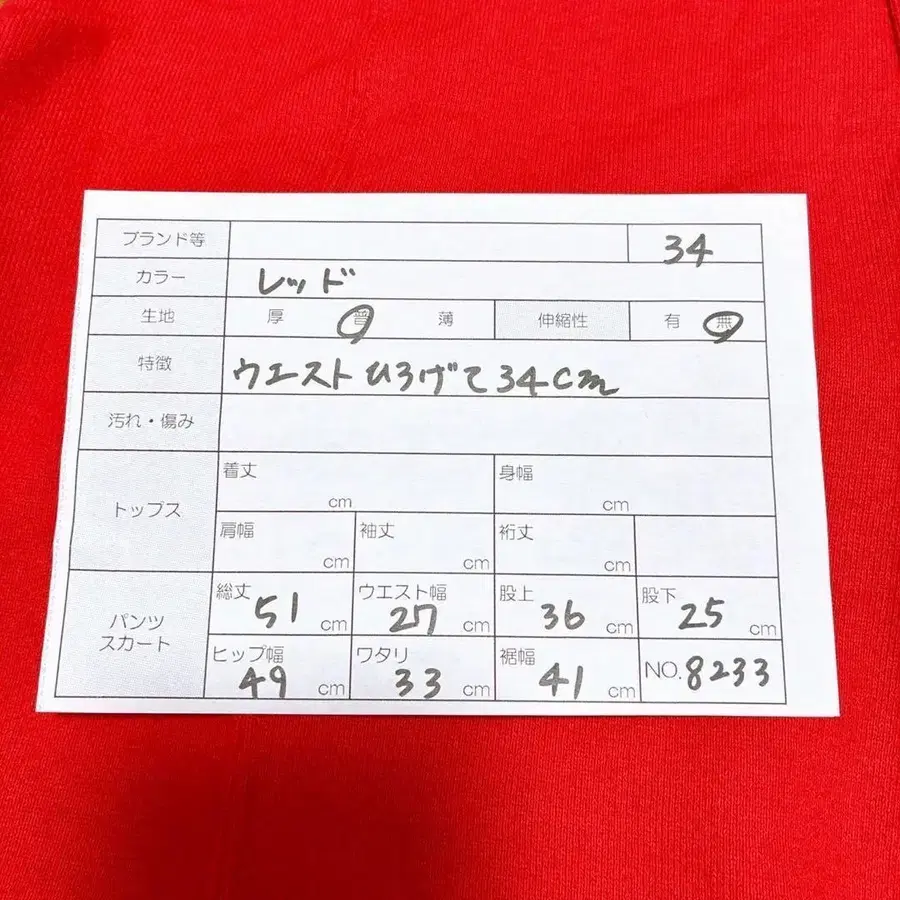 ブランド等 34
カラー レッド
生地 厚 普 薄 伸縮性 有 無
特徴 ウエストひろげて34cm
汚れ・傷み
トップス
着丈 cm 身幅 cm
肩幅 cm 袖丈 cm 裄丈 cm
パンツ
スカート
総丈 51 cm ウエスト幅 27 cm 股上 36 cm 股下 25 cm
ヒップ幅 49 cm ワタリ 33 cm 裾幅 41 cm NO. 8233